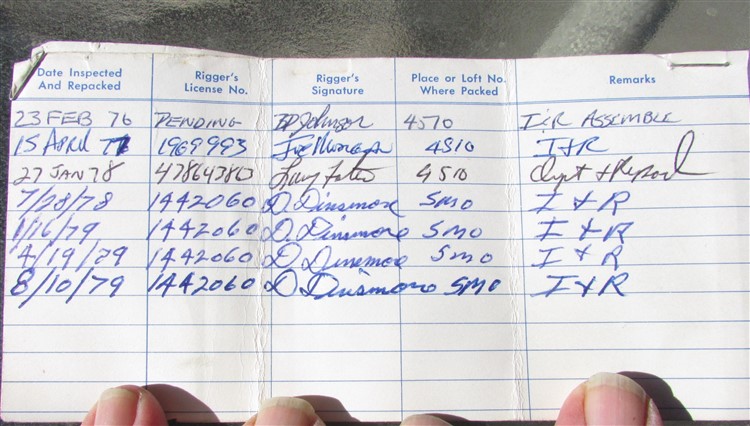 Date Inspected And Repacked Rigger's License No. Rigger's Signature Place or Loft No. Where Packed Remarks
23 FEB 76 PENDING Johnson 4510 I&R ASSEMBLE
15 APRIL 77 1969993 4510 I&R
27 JAN 78 4510
7/28/78 1442060 D. Dinsmore SMO I & R
1/16/79 1442060 D. Dinsmore SMO I & R
4/19/79 1442060 D. Dinsmore SMO I & R
8/10/79 1442060 D. Dinsmore SMO I & R